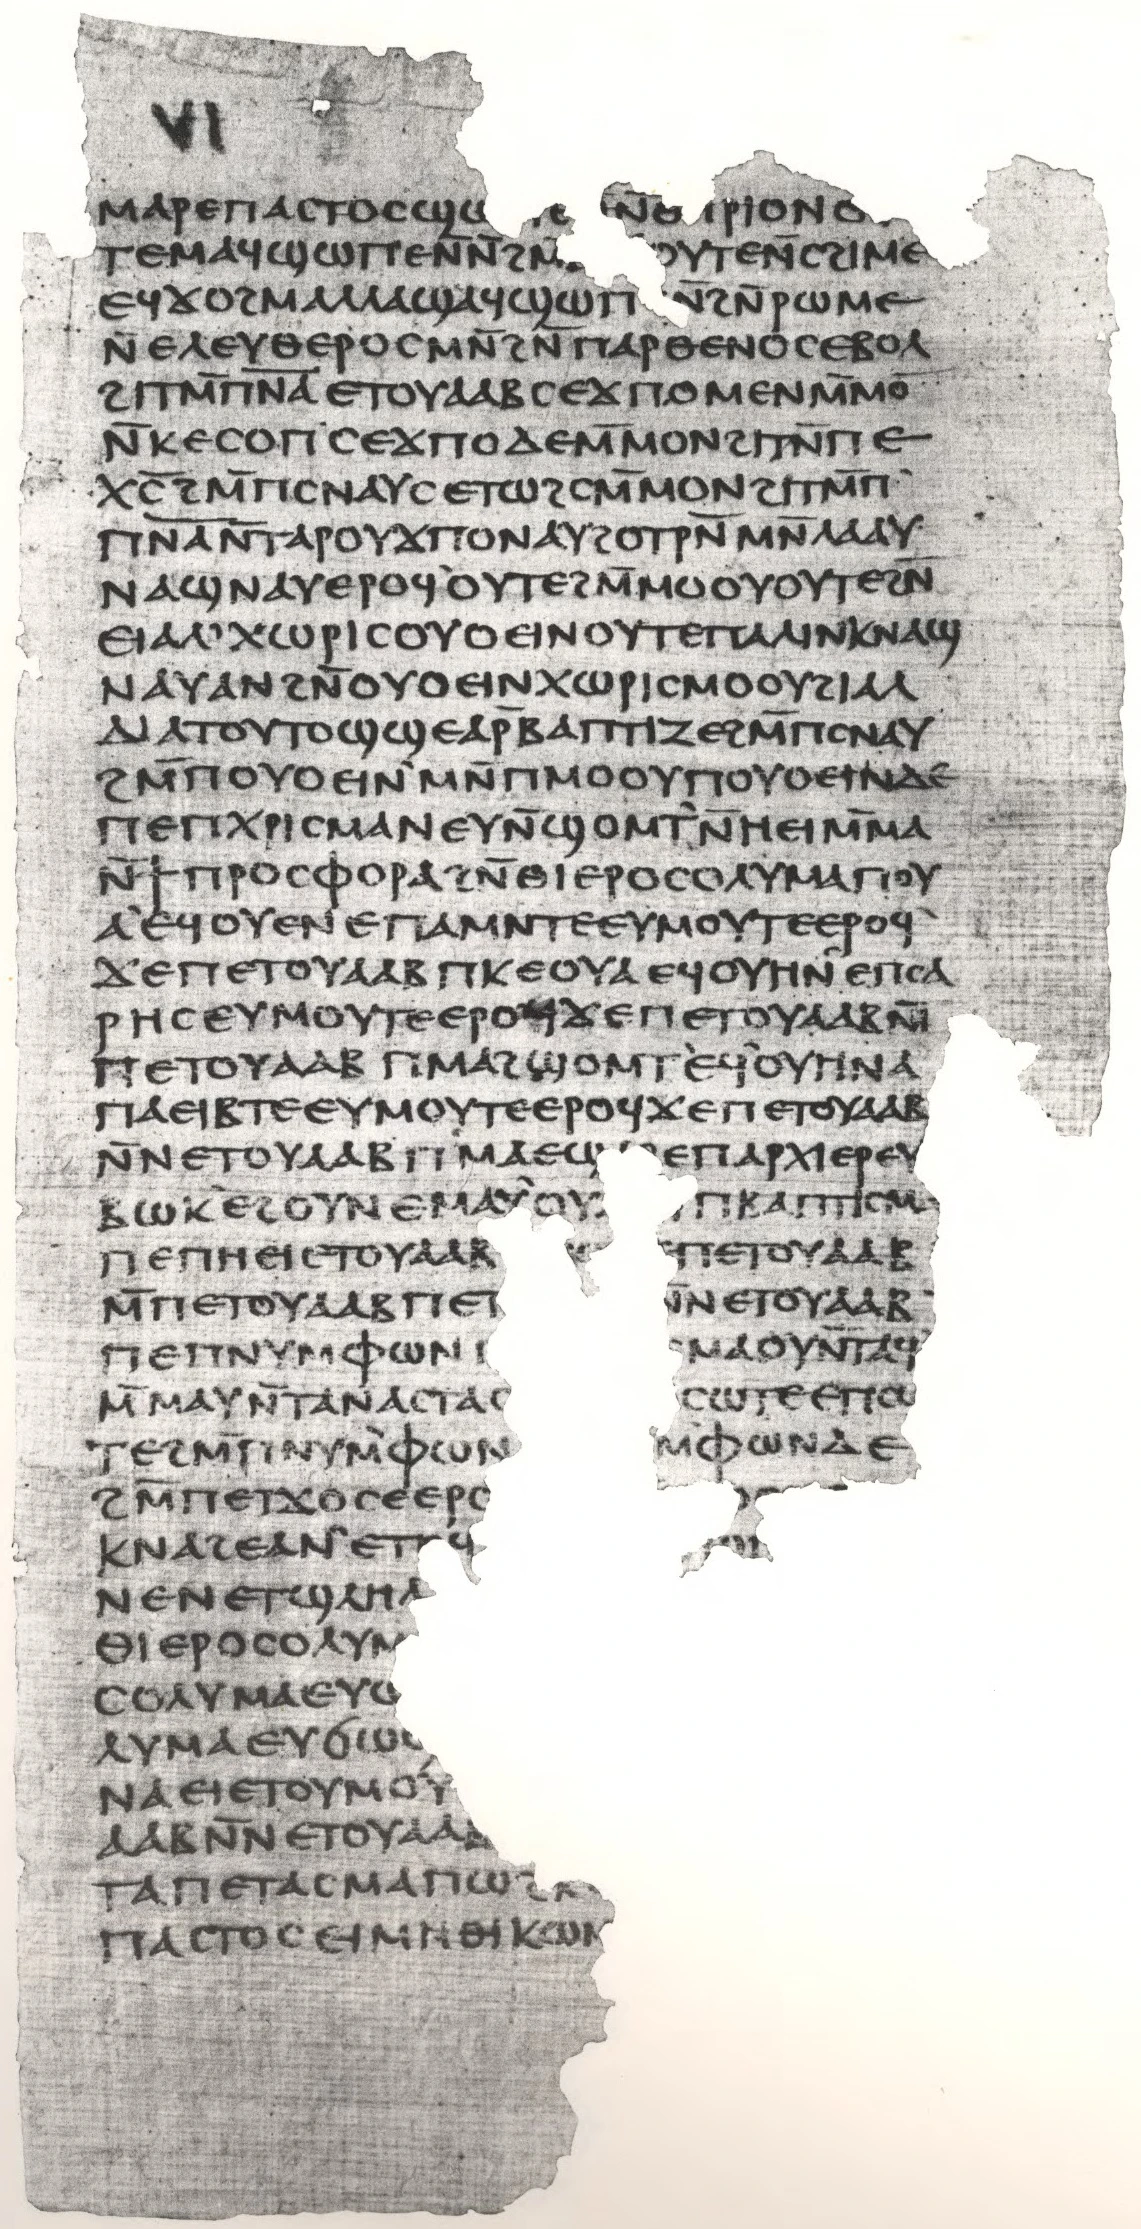 ⲙⲁⲣⲉⲡⲁⲥⲧⲟⲥϣⲱ ⲛⲑⲏⲣⲓⲟⲛ
ⲧⲉⲙⲁϥϣⲱⲡⲉⲛ̅ⲛ̅ϩⲙ ⲟⲩⲧⲉⲛ̅ⲥϩⲓⲙⲉ
ⲉϥϫⲟϩⲙⲁⲗⲗⲁϣⲁϥϣⲱⲡ ⲛ̅ϩⲛ̅ⲣⲱⲙⲉ
ⲛ̅ⲉⲗⲉⲩⲑⲉⲣⲟⲥⲙⲛ̅ϩⲛ̅ⲡⲁⲣⲑⲉⲛⲟⲥⲉⲃⲟⲗ
ϩⲓⲧⲙ̅ⲡⲡ̅ⲛ̅ⲁ̅ⲉⲧⲟⲩⲁⲁⲃⲥⲉϫⲡⲟⲙⲉⲛⲙ̅ⲙⲟ
ⲛ̅ⲕⲉⲥⲟⲡ'ⲥⲉϫⲡⲟⲇⲉⲙ̅ⲙⲟⲛϩⲓⲧⲛ̅ⲡⲉ
ⲭ̅ⲥ̅ϩⲙ̅ⲡⲥⲛⲁⲩⲥⲉⲧⲱϩⲥⲙ̅ⲙⲟⲛϩⲓⲧⲙ̅ⲡ'
ⲡ̅ⲛ̅ⲁ̅ⲛ̅ⲧⲁⲣⲟⲩϫⲡⲟⲛⲁⲩϩⲟⲧⲣⲛ̅ⲙⲛ̅ⲗⲁⲁⲩ
ⲛⲁϣⲛⲁⲩⲉⲣⲟϥ'ⲟⲩⲧⲉϩⲙ̅ⲙⲟⲟⲩⲟⲩⲧⲉϩⲛ̅
ⲉⲓⲁⲗ'ⲭⲱⲣⲓⲥⲟⲩⲟⲉⲓⲛⲟⲩⲧⲉⲡⲁⲗⲓⲛⲕⲛⲁϣ
ⲛⲁⲩⲁⲛϩⲛ̅ⲟⲩⲟⲉⲓⲛⲭⲱⲣⲓⲥⲙⲟⲟⲩϩⲓⲁⲗ
ⲇⲓⲁⲧⲟⲩⲧⲟϣϣⲉⲁⲣ̅ⲃⲁⲡⲧⲓⲍⲉϩⲙ̅ⲡⲥⲛⲁⲩ
ϩⲙ̅ⲡⲟⲩⲟⲉⲓⲛ'ⲙⲛ̅ⲡⲙⲟⲟⲩⲡⲟⲩⲟⲉⲓⲛⲇⲉ
ⲡⲉⲡⲭⲣⲓⲥⲙⲁⲛⲉⲩⲛ̅ϣⲟⲙⲧ'ⲛ̅ⲏⲉⲓⲙ̅ⲙⲁ
ⲛ̅ϯⲡⲣⲟⲥⲫⲟⲣⲁϩⲛ̅ⲑⲓⲉⲣⲟⲥⲟⲗⲩⲙⲁⲡⲟⲩ
ⲁ'ⲉϥⲟⲩⲉⲛ'ⲉⲡⲁⲙⲛⲧⲉⲉⲩⲙⲟⲩⲧⲉⲉⲣⲟϥ'
ϫⲉⲡⲉⲧⲟⲩⲁⲁⲃⲡⲕⲉⲟⲩⲁⲉϥⲟⲩⲏⲛ'ⲉⲡⲥⲁ
ⲣⲏⲥⲉⲩⲙⲟⲩⲧⲉⲉⲣⲟϥϫⲉⲡⲉⲧⲟⲩⲁⲁⲃⲙ̅
ⲡⲉⲧⲟⲩⲁⲁⲃ ⲡⲙⲁϩϣⲟⲙⲧ'ⲉϥ'ⲟⲩⲏⲛⲁ
ⲡⲁⲉⲓⲃⲧⲉⲉⲩⲙⲟⲩⲧⲉⲉⲣⲟϥϫⲉⲡⲉⲧⲟⲩⲁⲁⲃ
ⲛ̅ⲛⲉⲧⲟⲩⲁⲁⲃⲡ'ⲙⲁⲉϣⲁⲣⲉⲡⲁⲣⲭⲓⲉⲣⲉⲩ
ⲃⲱⲕ'ⲉϩⲟⲩⲛⲉⲙⲁⲩ'ⲟⲩ ⲡⲃⲁⲡⲧⲓⲥⲙ
ⲡⲉⲡⲏⲉⲓⲉⲧⲟⲩⲁⲁⲃ ⲡⲉⲧⲟⲩⲁⲁⲃ
ⲙ̅ⲡⲉⲧⲟⲩⲁⲁⲃⲡⲉⲡ ⲛ̅ⲛⲉⲧⲟⲩⲁⲁⲃ
ⲡⲉⲡⲛⲩⲙⲫⲱⲛ ⲙⲁⲟⲩⲛ̅ⲧⲁϥ
ⲙ̅ⲙⲁⲩⲛ̅ⲧⲁⲛⲁⲥⲧⲁⲥ ⲥⲱⲧⲉⲉⲡⲥⲱ
ⲧⲉϩⲙ̅ⲡⲛⲩⲙ'ⲫⲱⲛ ⲙ'ⲫⲱⲛⲇⲉ
ϩⲙ̅ⲡⲉⲧϫⲟⲥⲉⲉⲣⲟ
ⲕⲛⲁϩⲉⲁⲛ'ⲉⲧ
ⲛⲉⲛⲉⲧϣⲗⲏⲗ
ⲑⲓⲉⲣⲟⲥⲟⲗⲩⲙ
ⲥⲟⲗⲩⲙⲁⲉⲩ
ⲗⲩⲙⲁⲉⲩϭⲱ
ⲛⲁⲉⲓⲉⲧⲟⲩⲙⲟⲩ
ⲁⲁⲃⲛ̅ⲛⲉⲧⲟⲩⲁⲁⲃ
ⲧⲁⲡⲉⲧⲁⲥⲙⲁⲡⲱϩ
ⲡⲁⲥⲧⲟⲥⲉⲓⲙⲏⲑⲓⲕⲱⲛ